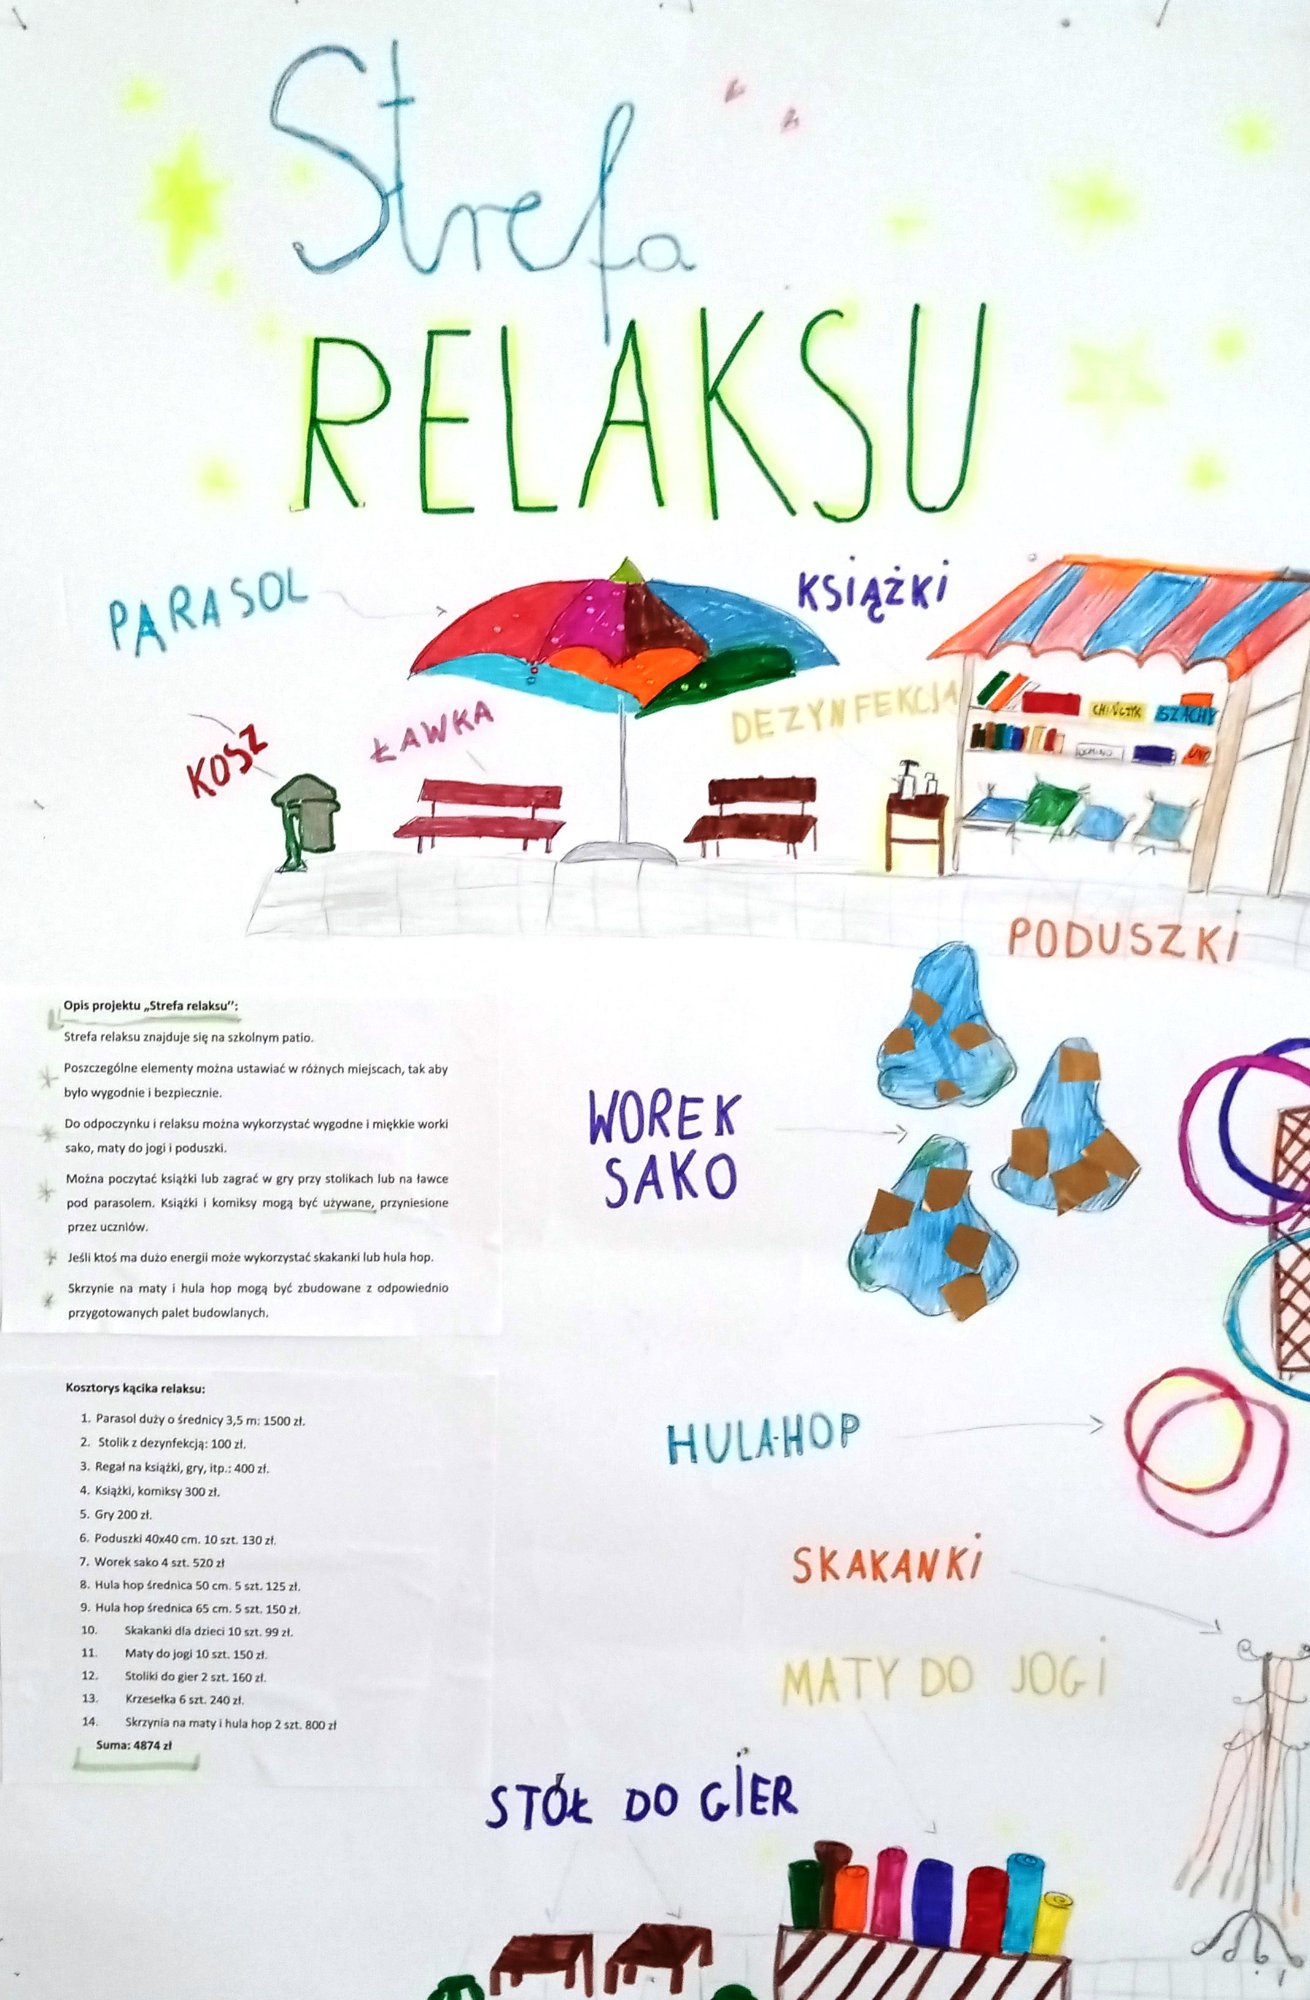 Strefa
RELAKSU
PARASOL
KSIĄŻKI
KOSZ
ŁAWKA
DEZYNFEKCJA
CHIŃCZYK
SZACHY
DOMINO
UNO
PODUSZKI
Opis projektu „Strefa relaksu":
Strefa relaksu znajduje się na szkolnym patio.
Poszczególne elementy można ustawiać w różnych miejscach, tak aby
było wygodnie i bezpiecznie.
Do odpoczynku i relaksu można wykorzystać wygodne i miękkie worki
sako, maty do jogi i poduszki.
Można poczytać książki lub zagrać w gry przy stolikach lub na ławce
pod parasolem. Książki i komiksy mogą być używane, przyniesione
przez uczniów.
Jeśli ktoś ma dużo energii może wykorzystać skakanki lub hula hop.
Skrzynie na maty i hula hop mogą być zbudowane z odpowiednio
przygotowanych palet budowlanych.
WOREK
SAKO
Kosztorys kącika relaksu:
1. Parasol duży o średnicy 3,5 m: 1500 zł.
2. Stolik z dezynfekcją: 100 zł.
3. Regał na książki, gry, itp.: 400 zł.
4. Książki, komiksy 300 zł.
5. Gry 200 zł.
6. Poduszki 40x40 cm. 10 szt. 130 zł.
7. Worek sako 4 szt. 520 zł
8. Hula hop średnica 50 cm. 5 szt. 125 zł.
9. Hula hop średnica 65 cm. 5 szt. 150 zł.
10. Skakanki dla dzieci 10 szt. 99 zł.
11. Maty do jogi 10 szt. 150 zł.
12. Stoliki do gier 2 szt. 160 zł.
13. Krzesełka 6 szt. 240 zł.
14. Skrzynia na maty i hula hop 2 szt. 800 zł
Suma: 4874 zł
HULA-HOP
SKAKANKI
MATY DO JOGI
STÓŁ DO GIER